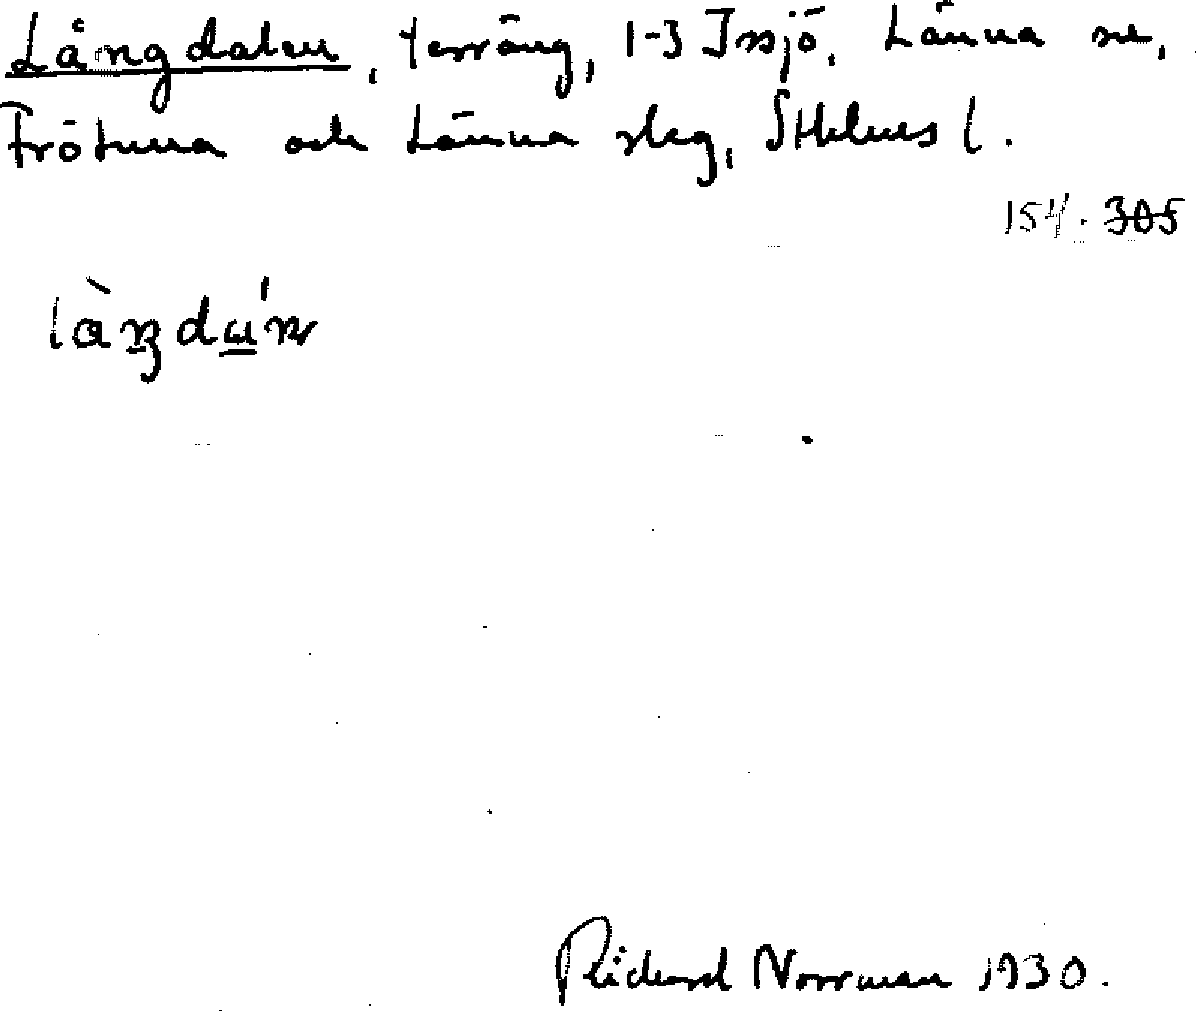 Långdalen, terräng, 1-3 Insjö, Länna sn,
Frötuna och Länna slag, Sthlms l.
154. 305
Richard Norrman 1930.